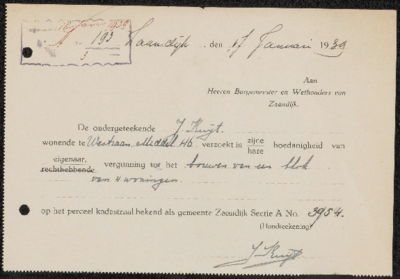 193
3
Zaandijk, den 17 Januari 1939
Aan
Heeren Burgemeester en Wethouders van
Zaandijk.
De ondergeteekende J Kuijt.
wonende te Westzaan Middel 46 verzoekt in zijne hare hoedanigheid van
eigenaar, rechthebbende vergunning tot het bouwen van een blok
van 4 woningen.
op het perceel kadastraal bekend als gemeente Zaandijk Sectie A No. 3954.
(Handteekening)
J Kuijt